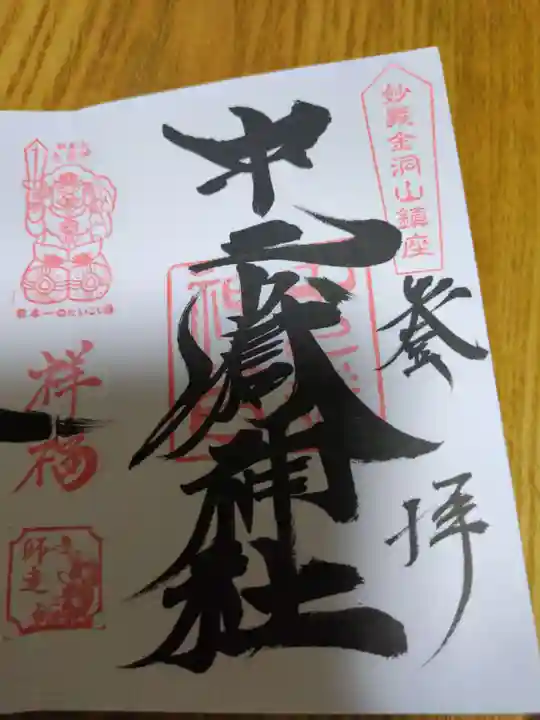 妙義金洞山鎮座
登
拝
中之嶽神社
日本一のだいこく様
祥福
師走